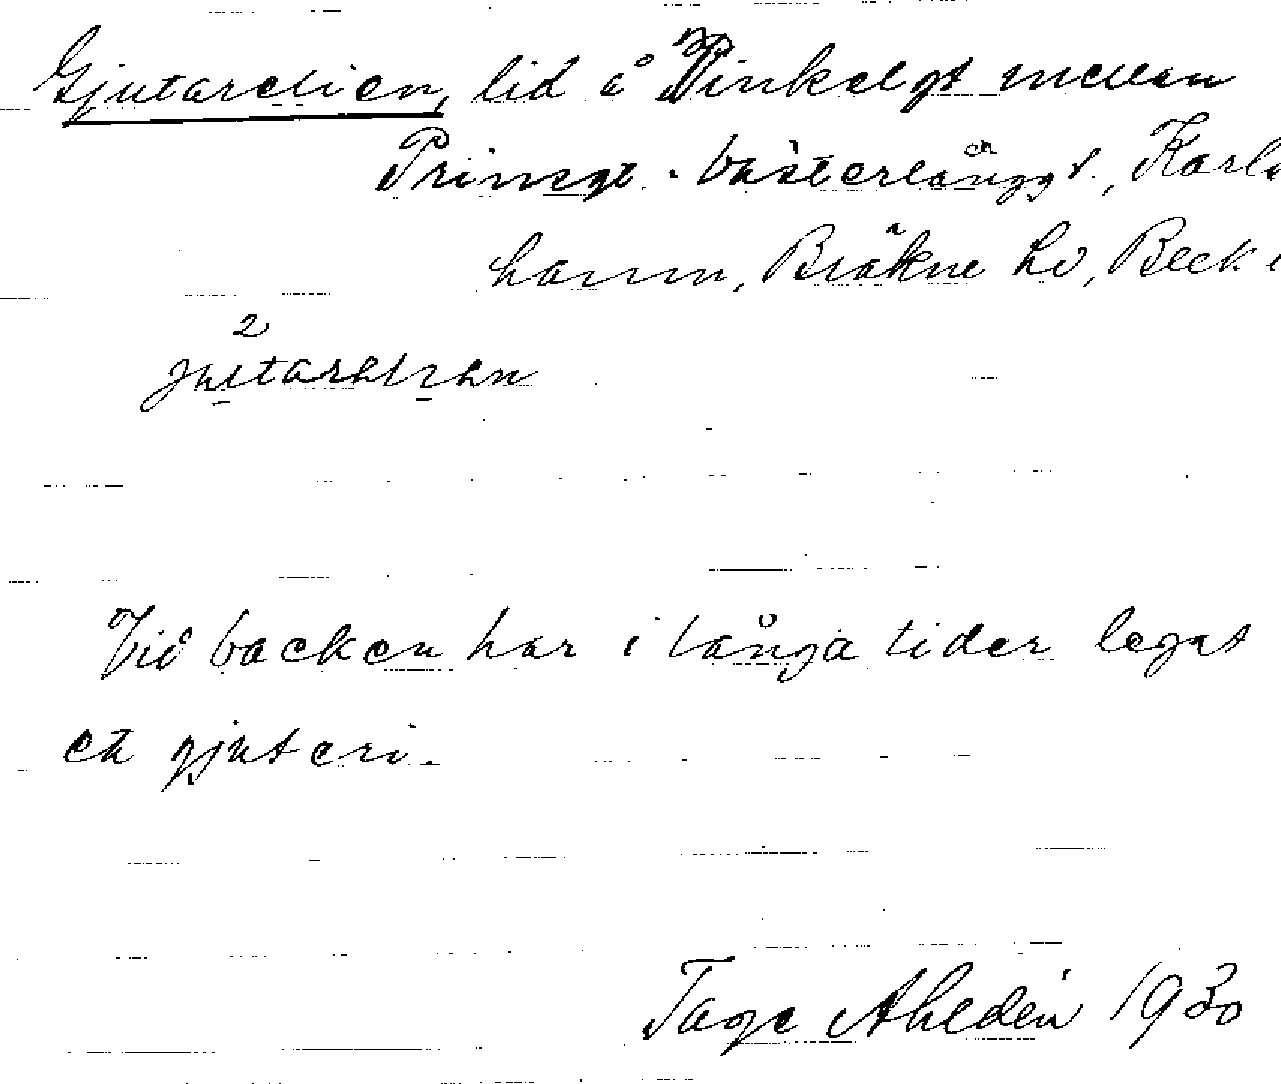 Gjutarelien, lid å Vinkelgt mellan
Prinsgt. Västerlånggt., Karls
hamn, Bräkne hd, Bleck i
2
Vid backen har i långa tider legat
ett gjuteri.
Tage Ahldén 1930